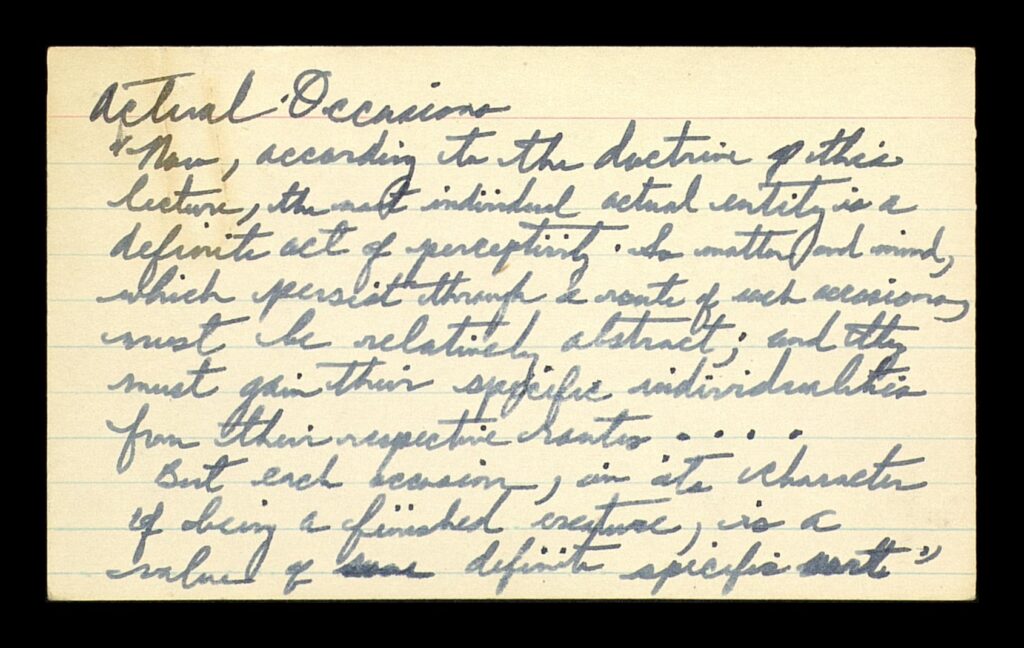 Actual Occasions
"Now, according to the doctrine of this
lecture, the most individual actual entity is a
definite act of perceptivity. So matter and mind,
which persist through a route of such occasions,
must be relatively abstract; and they
must gain their specific individualities
from their respective routes . . . .
But each occasion, in its character
of being a finished creature, is a
value of some definite specific sort"